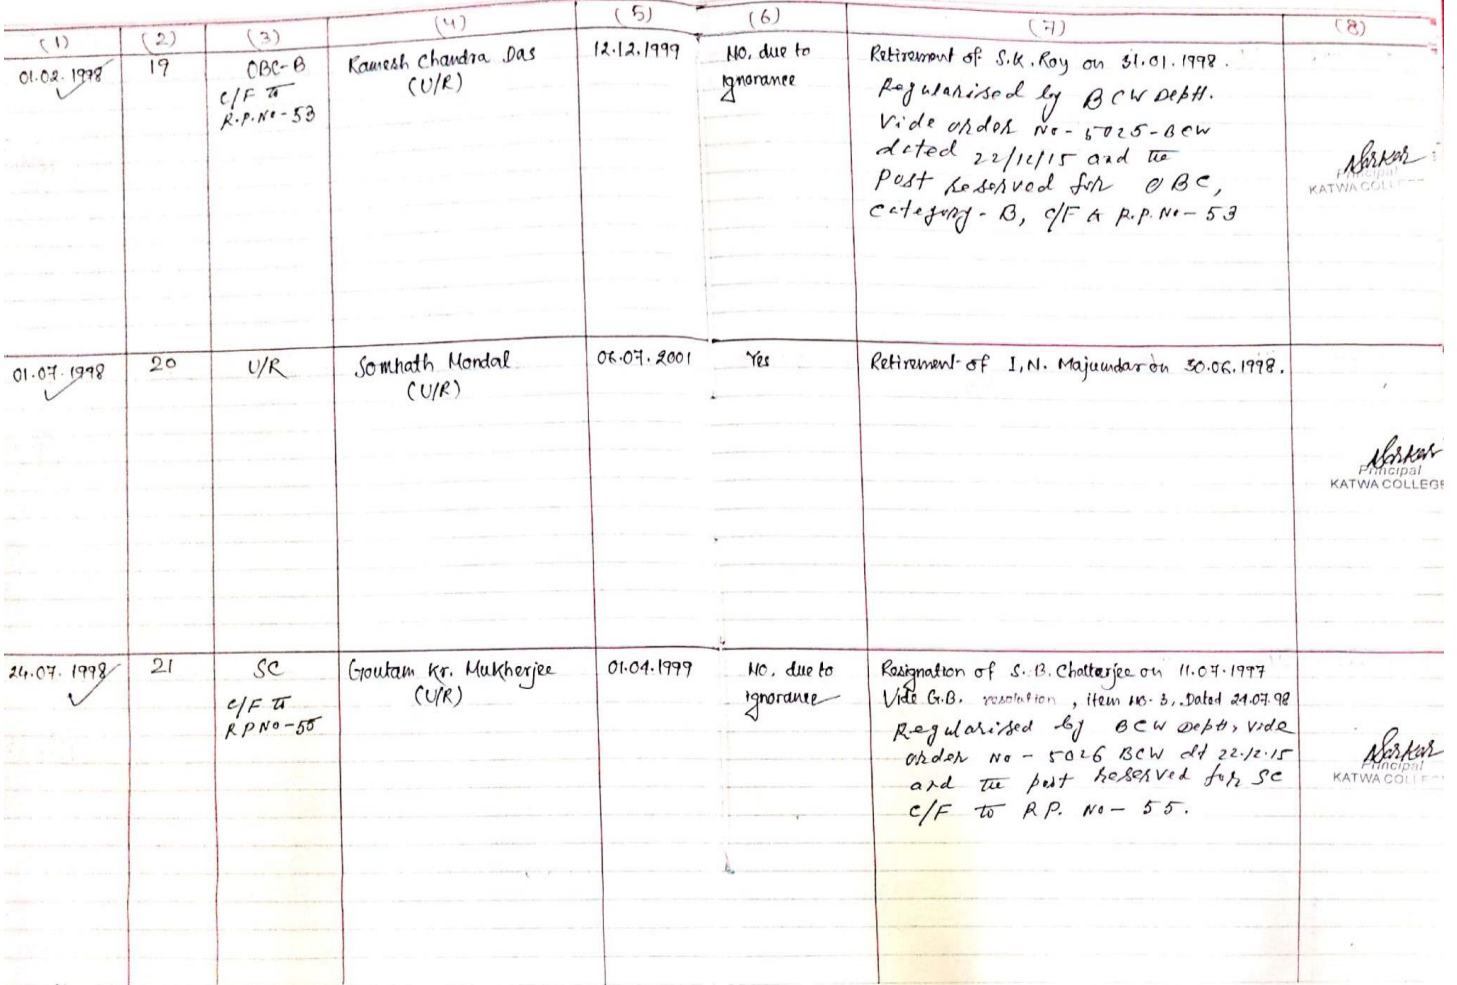 (1) (2) (3) (4) (5) (6) (7) (8)
01.02.1998 19 OBC-B Ramesh Chandra Das 12.12.1999 NO, due to Retirement of S.K. Roy on 31.01.1998.
C/F to (U/R) ignorance Regularised by BCW Deptt.
R.P. No - 53 Vide order No - 5025-BCW
dated 22/12/15 and the
post reserved for OBC,
Category - B, C/F to R.P. No - 53
Sarkar
Principal
KATWA COLLEGE
01.07.1998 20 U/R Somnath Mondal 06.07.2001 Yes Retirement of I.N. Majumdar on 30.06.1998.
(U/R)
Sarkar
Principal
KATWA COLLEGE
24.07.1998 21 SC Goutam Kr. Mukherjee 01.04.1999 NO, due to Resignation of S.B. Chatterjee on 11.07.1997
C/F to (U/R) ignorance Vide G.B. resolution, item no. 3, Dated 24.07.98
R P No - 55 Regularised by BCW Deptt, vide
order No - 5026 BCW dt 22.12.15
and the post reserved for SC
C/F to R P. No - 55.
Sarkar
Principal
KATWA COLLEGE